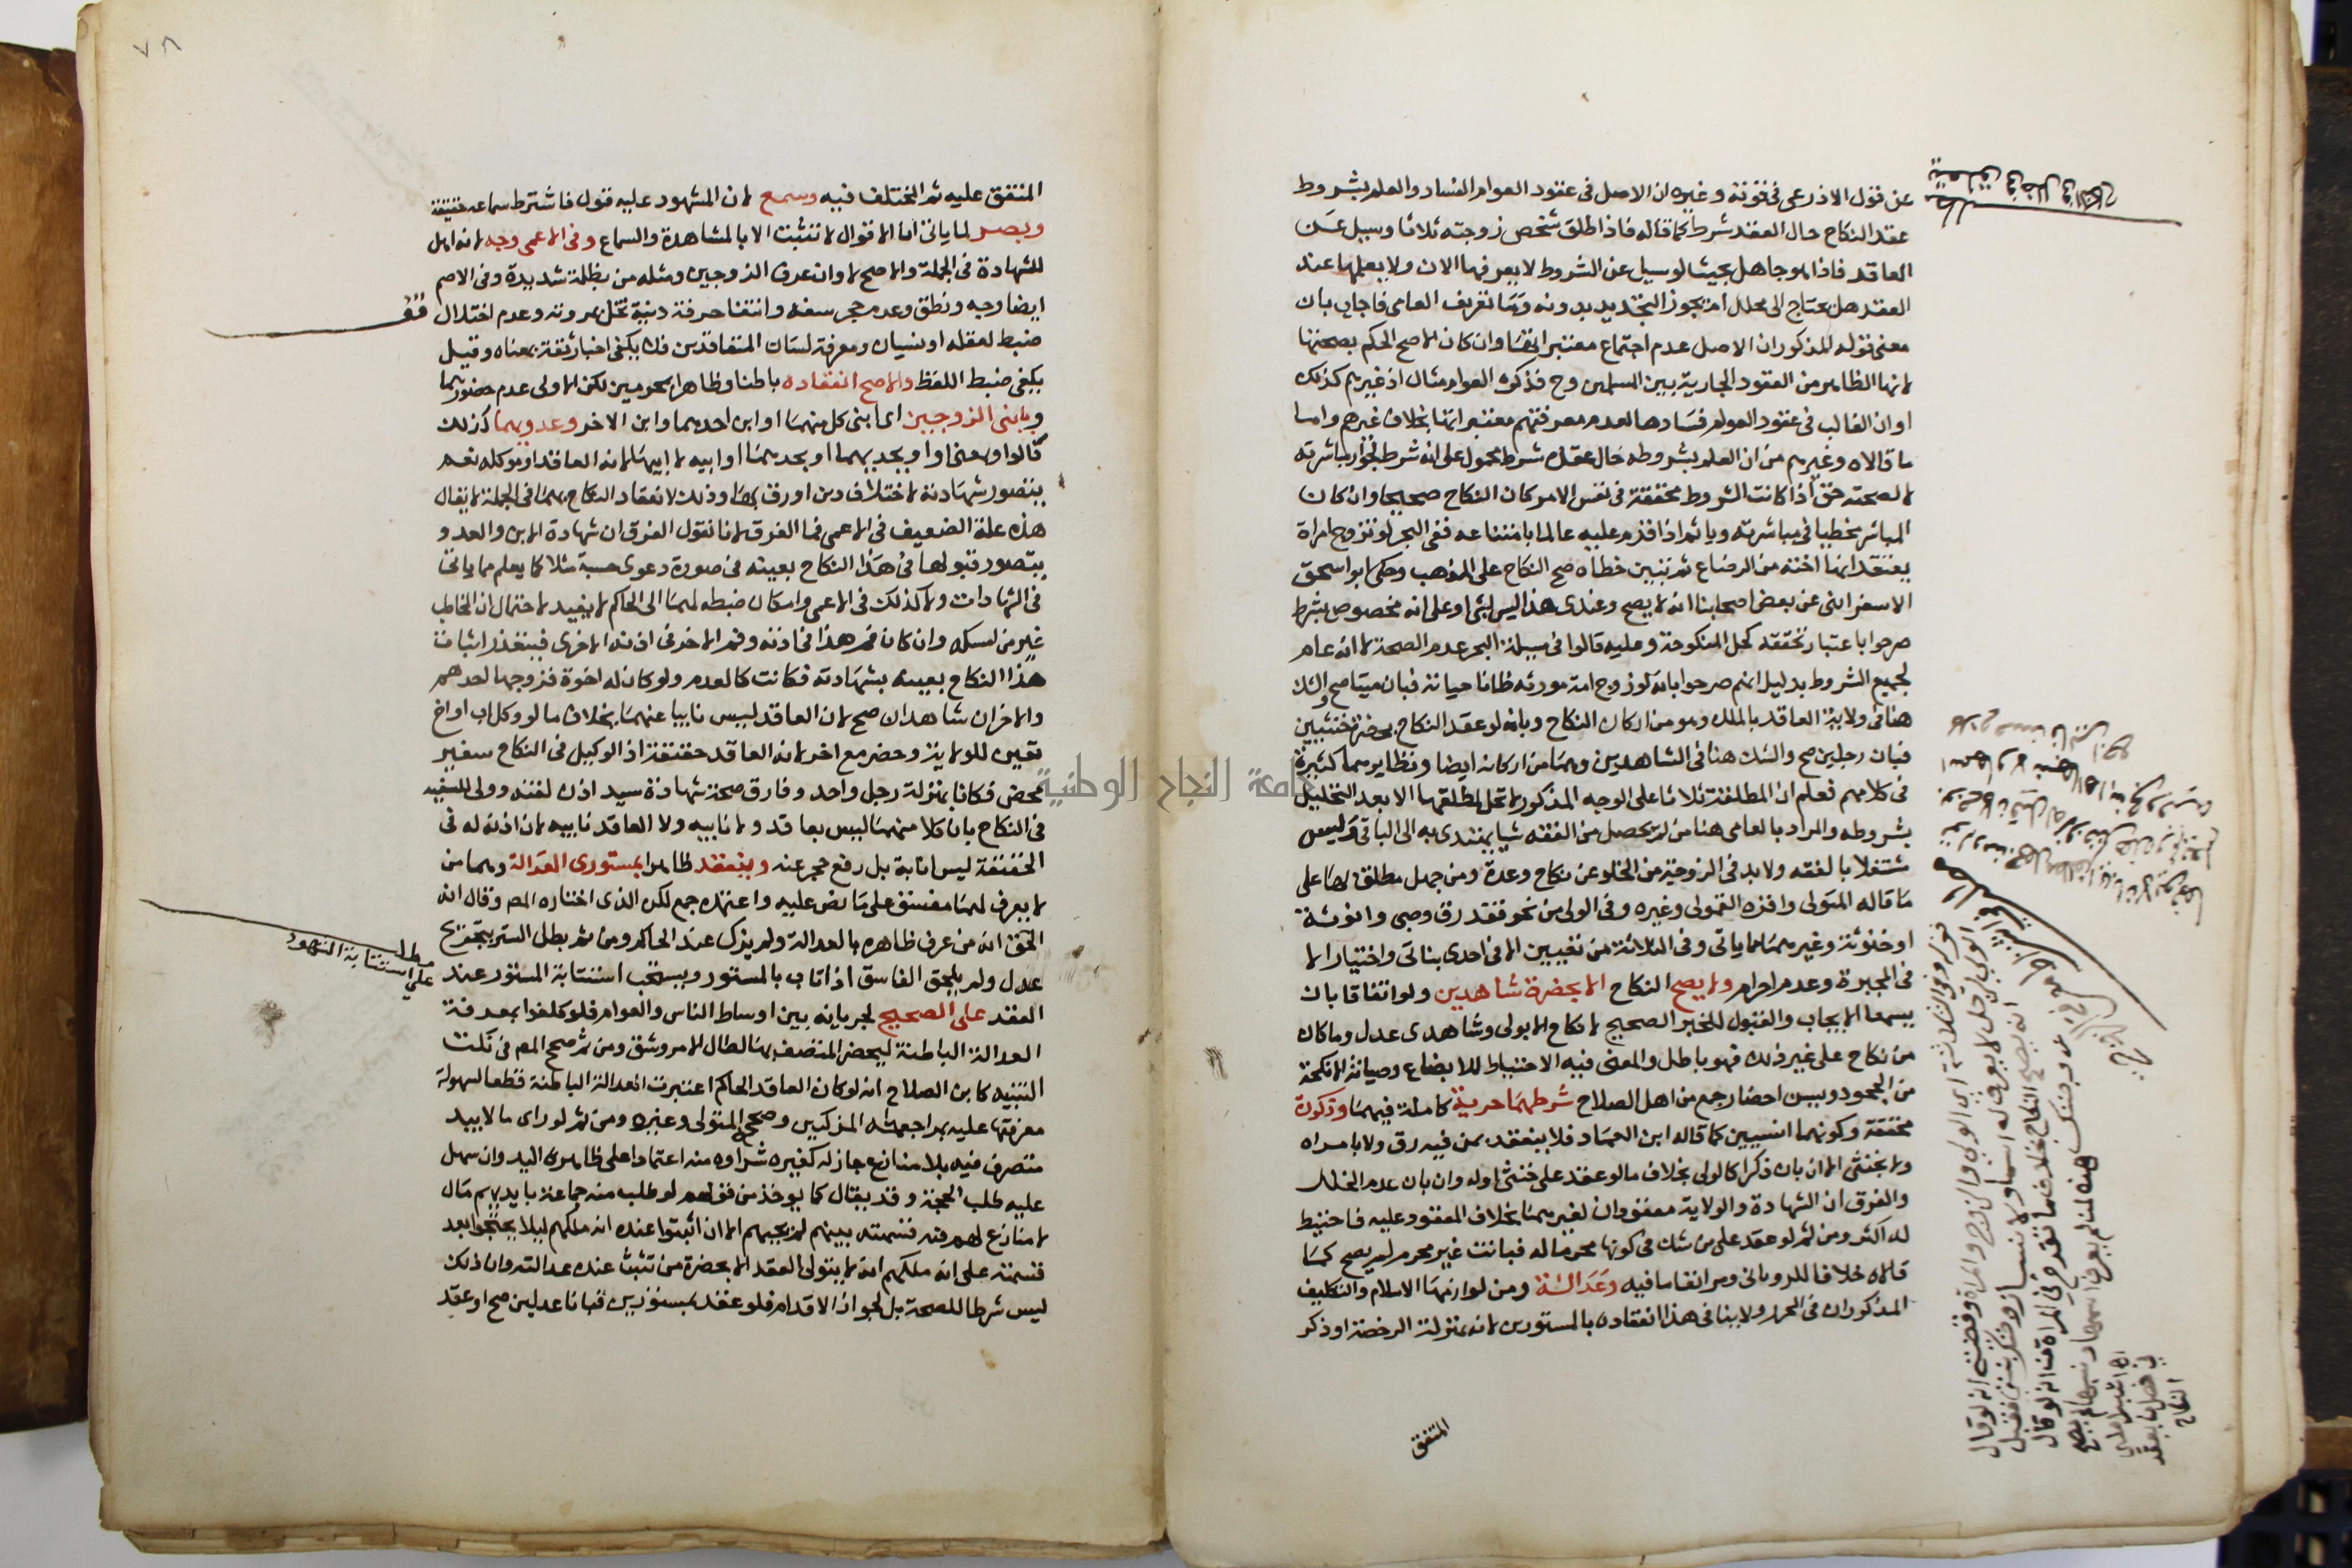 عن قول الاذرعى فى قوته وغيره ان الاصل فى عقود العوام الفساد والعلم بشروط
عقد النكاح حال العقد شرط كما قاله فاذا طلق شخص زوجته ثلاثا وسيل عن
العاقد فاذا هو جاهل بحيث لو سيل عن الشروط لا يعرفها الان ولا يعلمها عند
العقد هل يحتاج الى محلل ام يجوز التجديد بدونه وما تعريف العامى فاجاب بان
معنى قوله المذكور ان الاصل عدم اجتماع معتبراتها وان كان الاصح الحكم بصحتها
لانها الظاهر من العقود الجارية بين المسلمين وح فذكره العوام مثال اذ غيرهم كذلك
او ان الغالب فى عقود العوام فسادها لعدم معرفتهم معتبراتها بخلاف غيرهم واما
ما قالاه وغيرهم من ان العلم بشروطه حال عقده شرط محمول على انه شرط لجواز مباشرته
لا لصحته حتى اذا كانت الشروط محققة فى نفس الامر كان النكاح صحيحا وان كان
المباشر مخطيا فى مباشرته وياثم اذا اقدم عليه عالما بامتناعه ففى البحر لو تزوج امراة
يعتقد انها اخته من الرضاع ثم تبين خطاه صح النكاح على المذهب وحكى ابو اسحق
الاسفراينى عن بعض اصحابنا انه لا يصح وعندى هذا ليس بشى او على انه مخصوص بشرط
صرحوا باعتبار تحققه كحل المنكوحة وعليه قالوا فى مسيلة البحر عدم الصحة لا انه عام
لجميع الشروط بدليل انهم صرحوا بانه لو زوج امة مورثه ظانا حياته فبان ميتا صح والشك
هنا فى ولاية العاقد بالملك وهو من اركان النكاح وبانه لو عقد النكاح بحضرة خنثيين
فبان رجلين صح والشك هنا فى الشاهدين وهما من اركانه ايضا ونظايرهما كثيرة
فى كلامهم فعلم ان المطلقة ثلاثا على الوجه المذكور لا تحل لمطلقها الا بعد التحليل
بشروطه والمراد بالعامى هنا من لم يحصل من الفقه شيا يهتدى به الى الباقى وليس
مشتغلا بالفقه ولا بد فى الزوجة من الخلو عن نكاح وعدة ومن جهل مطلق لها على
ما قاله المتولى واقره القمولى وغيره وفى الولى من نحو فقد رق وصبى وانوثة
او خنوثة وغيرهما مما ياتى وفى الثلاثة من تعيين الا فى احدى بناتى واختيار الا
فى المجبرة وعدم احرام ولا يصح النكاح الا بحضرة شاهدين ولو اتفاقا بان
يسمعا الايجاب والقبول للخبر الصحيح لا نكاح الا بولى وشاهدى عدل وما كان
من نكاح على غير ذلك فهو باطل والمعنى فيه الاحتياط للابضاع وصيانة الانكحة
من الجحود ويسن احضار جمع من اهل الصلاح شرطهما حرية كاملة فيهما وذكورة
محققة وكونهما انسيين كما قاله ابن العماد فلا ينعقد بمن فيه رق ولا بامراه
ولا بخنثى الا ان بان ذكرا كالولى بخلاف ما لو عقد على خنثى او له وان بان عدم الخلل
والفرق ان الشهادة والولاية مقصودان لغيرهما بخلاف المعقود عليه فاحتيط
له اكثر ومن ثم لو عقد على من شك فى كونها محرما له فبانت غير محرم لم يصح كما
قالاه خلافا للرويانى ومر انفا ما فيه وعدالة ومن لوازمها الاسلام والتكليف
المذكوران فى المحرر ولا ينافى هذا انعقاده بالمستورين لانه بمنزلة الرخصة او ذكر
المتفق
المتفق عليه ثم المختلف فيه وسمع لان المشهود عليه قول فاشترط سماعه حقيقة
وبصر لما ياتى ان الاقوال لا تثبت الا بالمشاهدة والسماع وفى الاعمى وجه لانه اهل
للشهادة فى الجملة والاصح لا وان عرف الزوجين ومثله من بظلمة شديدة وفى الاصم
ايضا وجه ونطق وعدم حجر سفه وانتفا حرفة دنية تخل بمروته وعدم اختلال
ضبط لغفلة او نسيان ومعرفة لسان المتعاقدين فلا يكفى اخبار ثقة بمعناه وقيل
يكفى ضبط اللفظ والاصح انعقاده باطنا وظاهرا بمحرمين لكن الاولى عدم حضورهما
وبابنى الزوجين اى ابنى كل منهما او ابن احدهما وابن الاخر وعدويهما كذلك
كالواو بمعنى او او بجديهما او بجدهما او ابيه لا ابيها لانه العاقد او موكله نعم
يتصور شهادته لاختلاف دين او رق بها وذلك لانعقاد النكاح بهما فى الجملة لا يقال
هذه علة الضعيف فى الاعمى فما الفرق لانا نقول الفرق ان شهادة الابن والعدو
يتصور قبولها فى هذا النكاح بعينه فى صورة دعوى حسبة مثلا كما يعلم مما ياتى
فى الشهادات ولا كذلك فى الاعمى وامكان ضبطه لهما الى الحاكم لا يفيد لاحتمال ان المخاطب
غير من امسكه وان كان فم هذا فى اذنه وفم الاخر فى اذنه الاخرى فيتعذر اثبات
هذا النكاح بعينه بشهادته فكانت كالعدم ولو كان له اخوة فزوجها احدهم
والاخران شاهدان صح لان العاقد ليس نايبا عنهما بخلاف ما لو وكل اب او اخ
تعين للولاية وحضر مع اخر لانه العاقد حقيقة اذ الوكيل فى النكاح سفير
محض فكانا بمنزلة رجل واحد وفارق صحة شهادة سيد اذن لقنه وولى للسفيه
فى النكاح بان كلا منهما ليس بعاقد ولا نايبه ولا العاقد نايبه لان اذنه له فى
الحقيقة ليس انابة بل رفع حجر عنه وينعقد ظاهرا بمستورى العدالة وهما من
لا يعرف لهما مفسق على ما نص عليه واعتمده جمع لكن الذى اختاره المص وقال انه
الحق انه من عرف ظاهره بالعدالة ولم يزك عند الحاكم ومن ثم بطل الستر بتجريح
عدل ولم يلحق الفاسق اذا تاب بالمستور ويستحب استتابة المستور عند
العقد على الصحيح لجريانه بين اوساط الناس والعوام فلو كلفوا بمعرفة
العدالة الباطنة ليحضر المتصف بها لطال الامر وشق ومن ثم صحح المص فى نكت
التنبيه كابن الصلاح انه لو كان العاقد الحاكم اعتبرت العدالة الباطنة قطعا لسهولة
معرفتها عليه بمراجعة المزكيين وصحح المتولى وغيره ومن ثم لو راى مالا بيد
متصرف فيه بلا منازع جاز له كغيره شراوه منه اعتمادا على ظاهر اليد وان سهل
عليه طلب الحجة وقد يقال كما يوخذ من قولهم لو طلب منه جماعة بايديهم مال
لا منازع لهم فيه قسمته بينهم لم يجبهم الا ان اثبتوا عنده انه ملكهم ليلا يحتجوا بعد
قسمته على انه ملكهم انه لا يتولى العقد الا بحضرة من تثبت عنده عدالته وان ذلك
ليس شرطا للصحة بل لجواز الاقدام فلو عقد بمستورين فبانا عدلين صح او عقد
قف
مطلب
على استتابة الشهود
جامعة النجاح الوطنية
٧٨